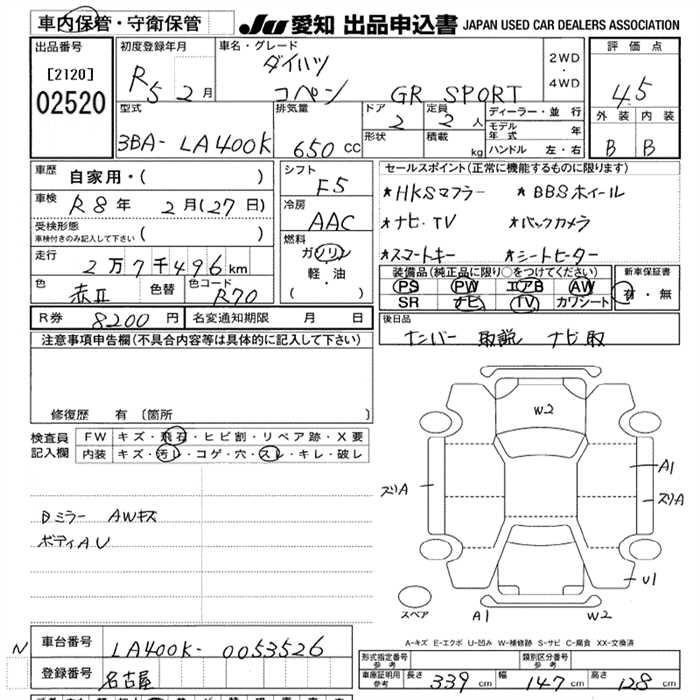 車内保管・守衛保管
JU 愛知 出品申込書 JAPAN USED CAR DEALERS ASSOCIATION
出品番号
[2120]
02520
初度登録年月
R5 2月
車名・グレード
ダイハツ
コペン GR SPORT
2WD
・
4WD
評価点
4.5
外装 内装
B B
型式
3BA-LA400K
排気量
650cc
ドア
2
形状
定員
2人
積載
kg
ディーラー・並行
モデル年式 年
ハンドル 左・右
車歴
自家用・( )
車検
R8年 2月(27日)
受検形態
車検付きのみ記入して下さい ( )
走行
2万7千496km
色
赤Ⅱ
色替
色コード
R70
シフト
F5
冷房
AAC
燃料
ガソリン
軽・油
( )
セールスポイント(正常に機能するものに限ります)
★HKSマフラー ★BBSホイール
★ナビ・TV ★バックカメラ
★スマートキー ★シートヒーター
装備品(純正品に限り○をつけてください)
PS PW エアB AW
SR ナビ TV カワシート
新車保証書
有・無
R券 8200円 名変通知期限 月 日
後日品
ナンバー 取説 ナビ取
注意事項申告欄(不具合内容等は具体的に記入して下さい)
修復歴 有 〔箇所 〕
検査員記入欄
FW キズ・飛石・ヒビ割・リペア跡・X要
内装 キズ・汚レ・コゲ・穴・スレ・キレ・破レ
Bミラー AWキズ
ボディAU
W2
ズリA
A1
ズリA
U1
スペア
A1 W2
A-キズ E-エクボ U-凹み W-補修跡 S-サビ C-腐食 XX-交換済
N
車台番号
LA400K-0053526
登録番号
名古屋
形式指定番号
参考
類別区分番号
参考
車庫証明用
参考
長さ 339cm 幅 147cm 高さ 128cm